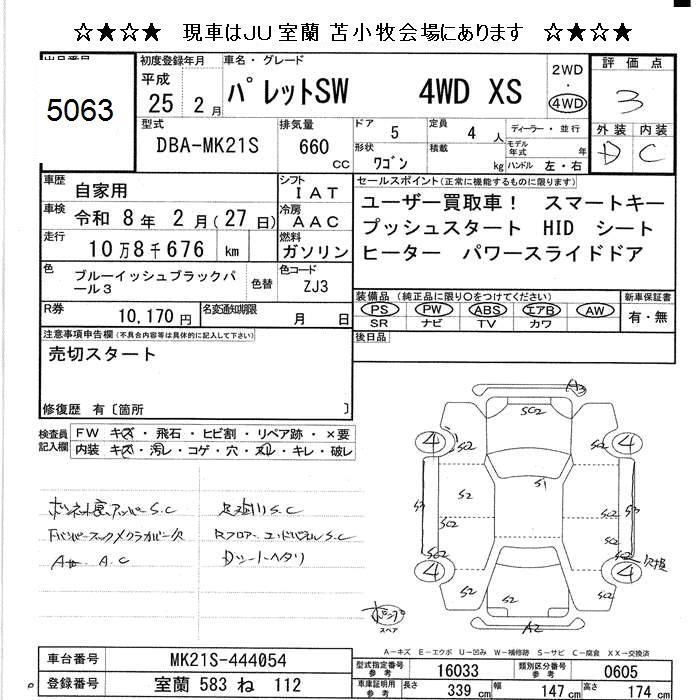 ☆★☆★ 現車はJU室蘭 苫小牧会場にあります ☆★☆★
出品番号
5063
初度登録年月
平成
25 2月
車名・グレード
パレットSW 4WD XS
2WD
・
4WD
評価点
3
外装 内装
D C
型式
DBA-MK21S
排気量
660 CC
ドア 5
形状 ワゴン
定員 4 人
積載 kg
ディーラー・並行
モデル年式 年
ハンドル 左・右
車歴
自家用
車検
令和 8年 2月(27日)
走行
10万8千676 km
シフト
IAT
冷房
AAC
燃料
ガソリン
セールスポイント(正常に機能するものに限ります)
ユーザー買取車! スマートキー
プッシュスタート HID シート
ヒーター パワースライドドア
色
ブルーイッシュブラックパール3
色替
色コード
ZJ3
R券
10,170円
名変通知期限
月 日
装備品(純正品に限り○をつけてください)
PS PW ABS エアB AW
SR ナビ TV カワ
新車保証書
有・無
後日品
注意事項申告欄(不具合内容等は具体的に記入して下さい)
売切スタート
修復歴 有〔箇所 〕
検査員記入欄
FW キズ・飛石・ヒビ割・リペア跡・×要
内装 キズ・汚レ・コゲ・穴・スレ・キレ・破レ
ボンネット裏アッパーS.C
Fバンパーフックメクラカバー欠
足廻りS.C
Rフロア、エンドパネルS.C
Dシートヘタリ
A3
SC2
4
4
SC2
SC2
S1
S2
S3
SC2
S3
SC2
SC2
4
4
欠損
S2
S2
SC2
A2
スペア
A-キズ E-エクボ U-凹み W-補修跡 S-サビ C-腐食 XX-交換済
車台番号
MK21S-444054
登録番号
室蘭 583 ね 112
型式指定番号
参考
16033
類別区分番号
参考
0605
車車証明用
参考
長さ
339 cm
幅
147 cm
高さ
174 cm